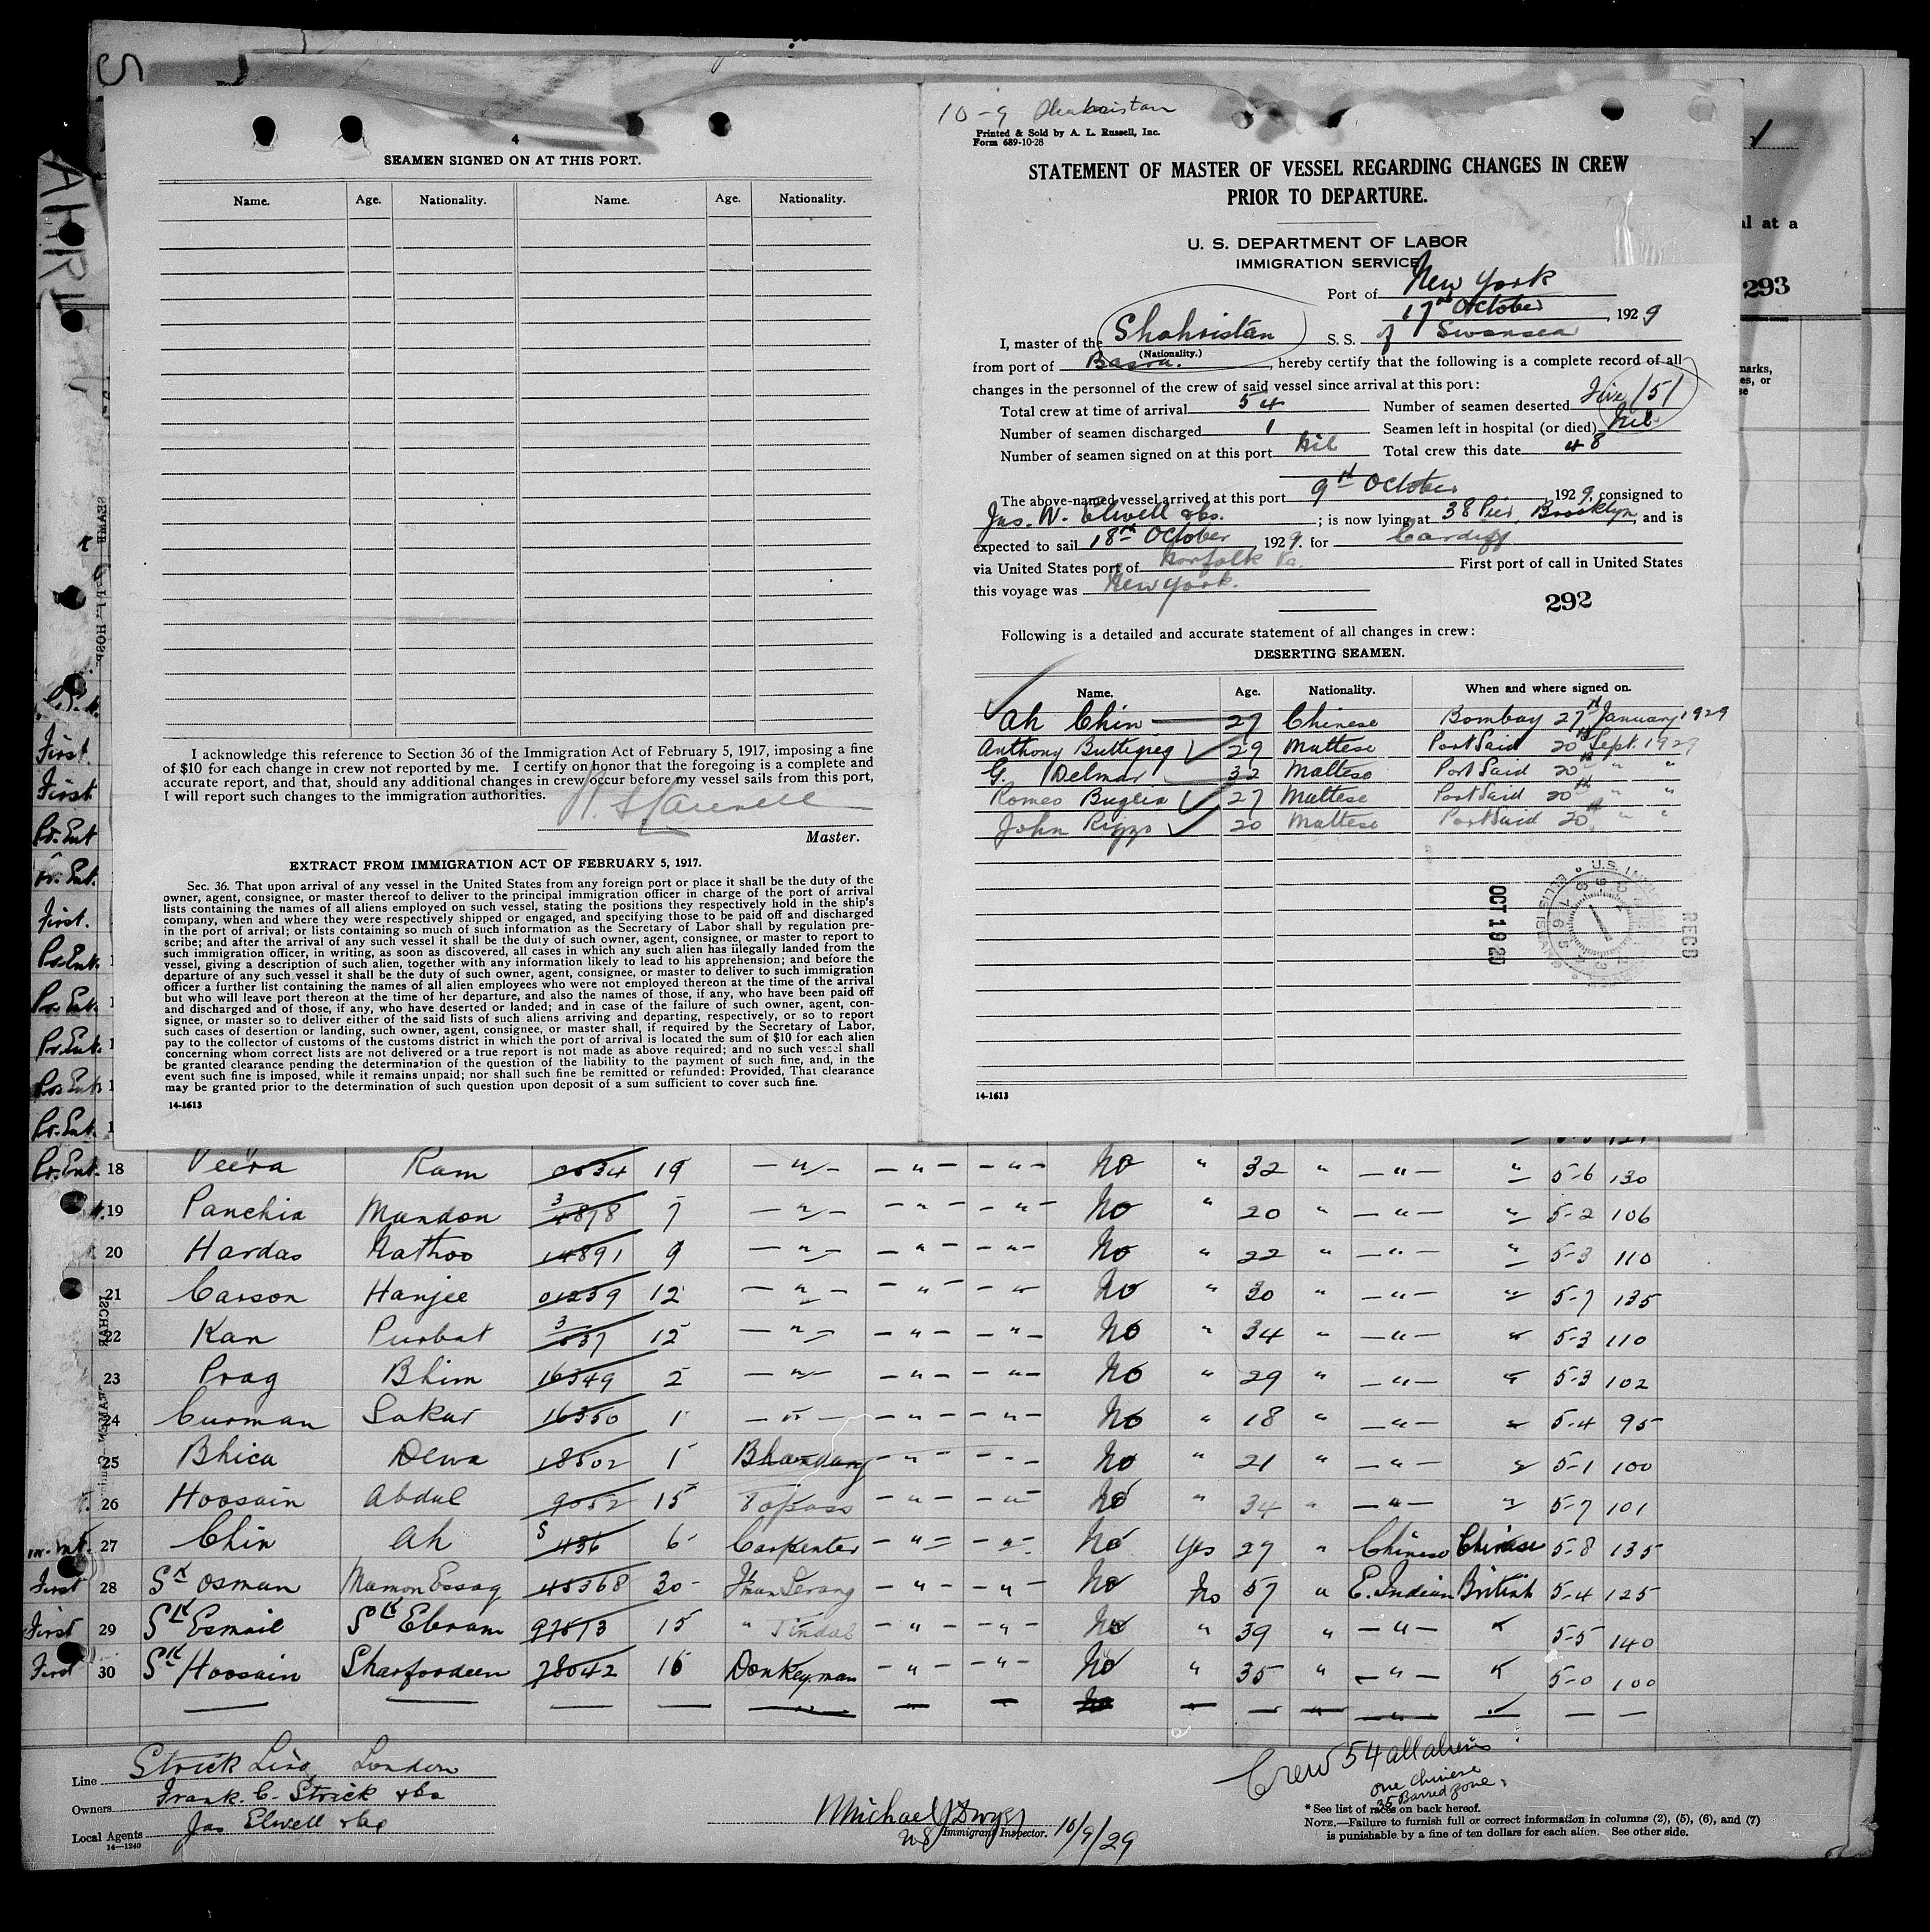 4
SEAMEN SIGNED ON AT THIS PORT.
Name. Age. Nationality. Name. Age. Nationality.
I acknowledge this reference to Section 36 of the Immigration Act of February 5, 1917, imposing a fine
of $10 for each change in crew not reported by me. I certify on honor that the foregoing is a complete and
accurate report, and that, should any additional changes in crew occur before my vessel sails from this port,
I will report such changes to the immigration authorities.
Master.
EXTRACT FROM IMMIGRATION ACT OF FEBRUARY 5, 1917.
Sec. 36. That upon arrival of any vessel in the United States from any foreign port or place it shall be the duty of the
owner, agent, consignee, or master thereof to deliver to the principal immigration officer in charge of the port of arrival
lists containing the names of all aliens employed on such vessel, stating the positions they respectively hold in the ship's
company, when and where they were respectively shipped or engaged, and specifying those to be paid off and discharged
in the port of arrival; or lists containing so much of such information as the Secretary of Labor shall by regulation pre-
scribe; and after the arrival of any such vessel it shall be the duty of such owner, agent, consignee, or master to report to
such immigration officer, in writing, as soon as discovered, all cases in which any such alien has illegally landed from the
vessel, giving a description of such alien, together with any information likely to lead to his apprehension; and before the
departure of any such vessel it shall be the duty of such owner, agent, consignee, or master to deliver to such immigration
officer a further list containing the names of all alien employees who were not employed thereon at the time of the arrival
but who will leave port thereon at the time of her departure, and also the names of those, if any, who have been paid off
and discharged and of those, if any, who have deserted or landed; and in case of the failure of such owner, agent, con-
signee, or master so to deliver either of the said lists of such aliens arriving and departing, respectively, or so to report
such cases of desertion or landing, such owner, agent, consignee, or master shall, if required by the Secretary of Labor,
pay to the collector of customs of the customs district in which the port of arrival is located the sum of $10 for each alien
concerning whom correct lists are not delivered or a true report is not made as above required; and no such vessel shall
be granted clearance pending the determination of the question of the liability to the payment of such fine, and, in the
event such fine is imposed, while it remains unpaid; nor shall such fine be remitted or refunded: Provided, That clearance
may be granted prior to the determination of such question upon deposit of a sum sufficient to cover such fine.
14-1613
10-9 Shahristan
Printed & Sold by A. L. Russell, Inc.
Form 689-10-28
STATEMENT OF MASTER OF VESSEL REGARDING CHANGES IN CREW
PRIOR TO DEPARTURE.
U. S. DEPARTMENT OF LABOR
IMMIGRATION SERVICE
Port of New York
17th October, 1929
I, master of the Shahristan S. S. of Swansea
(Nationality.)
from port of Basra., hereby certify that the following is a complete record of all
changes in the personnel of the crew of said vessel since arrival at this port:
Total crew at time of arrival 54 Number of seamen deserted Five /5/
Number of seamen discharged 1 Seamen left in hospital (or died) Nil.
Number of seamen signed on at this port Nil Total crew this date 48
The above-named vessel arrived at this port 9th October, 1929, consigned to
Jas. W. Elwell & Co. ; is now lying at 38 Pier, Brooklyn, and is
expected to sail 18th October, 1929. for Cardiff
via United States port of Norfolk Va. First port of call in United States
this voyage was New York.
292
Following is a detailed and accurate statement of all changes in crew:
DESERTING SEAMEN.
Name. Age. Nationality. When and where signed on.
Ah Chin 27 Chinese Bombay 27th January 1929
Anthony Buttigieg 29 Maltese Port Said 20th Sept. 1929
G. Delmar 32 Maltese Port Said 20th " "
Romeo Buglia 27 Maltese Port Said 20th " "
John Rizzo 20 Maltese Port Said 20th " "
RECD
14-1613
al at a
293
marks,
es, or
se
First.
First
Pr. Ent
First.
Pr. Ent. 18 Veera Ram 0534 19 " " " No " 32 " " " 5-6 130
19 Panchia Mandon 3/4878 7 " " " No " 20 " " " 5-2 106
20 Hardas Nathoo 14891 9 " " " No " 22 " " " 5-3 110
21 Carson Hanjee 01259 12 " " " No " 30 " " " 5-7 135
22 Kan Purbat 3/537 12 " " " No " 34 " " " 5-3 110
23 Prag Bhim 16349 2 " " " No " 29 " " " 5-3 102
24 Curman Lakar 16350 1 " " " No " 18 " " " 5-4 95
25 Bhica Dewa 18502 1 Bhandary " " No " 21 " " " 5-1 100
26 Hoosain Abdul 9052 15 Topass " " No " 34 " " " 5-7 101
27 Chin Ah S 436 6 Carpenter " " No Yes 27 " Chinese Chinese 5-8 135
First 28 Sk Osman Mamon Essag 45368 30 Fman Serang " " No No 57 " E. Indian British 5-4 125
First 29 Sk Esmail Sk Ebram 97573 15 " Tindal " " No " 39 " " " 5-5 140
First 30 Sk Hoosain Sharfoodeen 78042 16 Donkeyman " " No " 35 " " " 5-0 100
Line Strick Line, London
Owners Frank. C. Strick & Co
Local Agents Jas Elwell & Co
14-1240
Immigrant Inspector. 10/9/29
Crew 54 all aliens
one Chinese
35 Barred zone.
* See list of races on back hereof.
NOTE.—Failure to furnish full or correct information in columns (2), (5), (6), and (7)
is punishable by a fine of ten dollars for each alien. See other side.